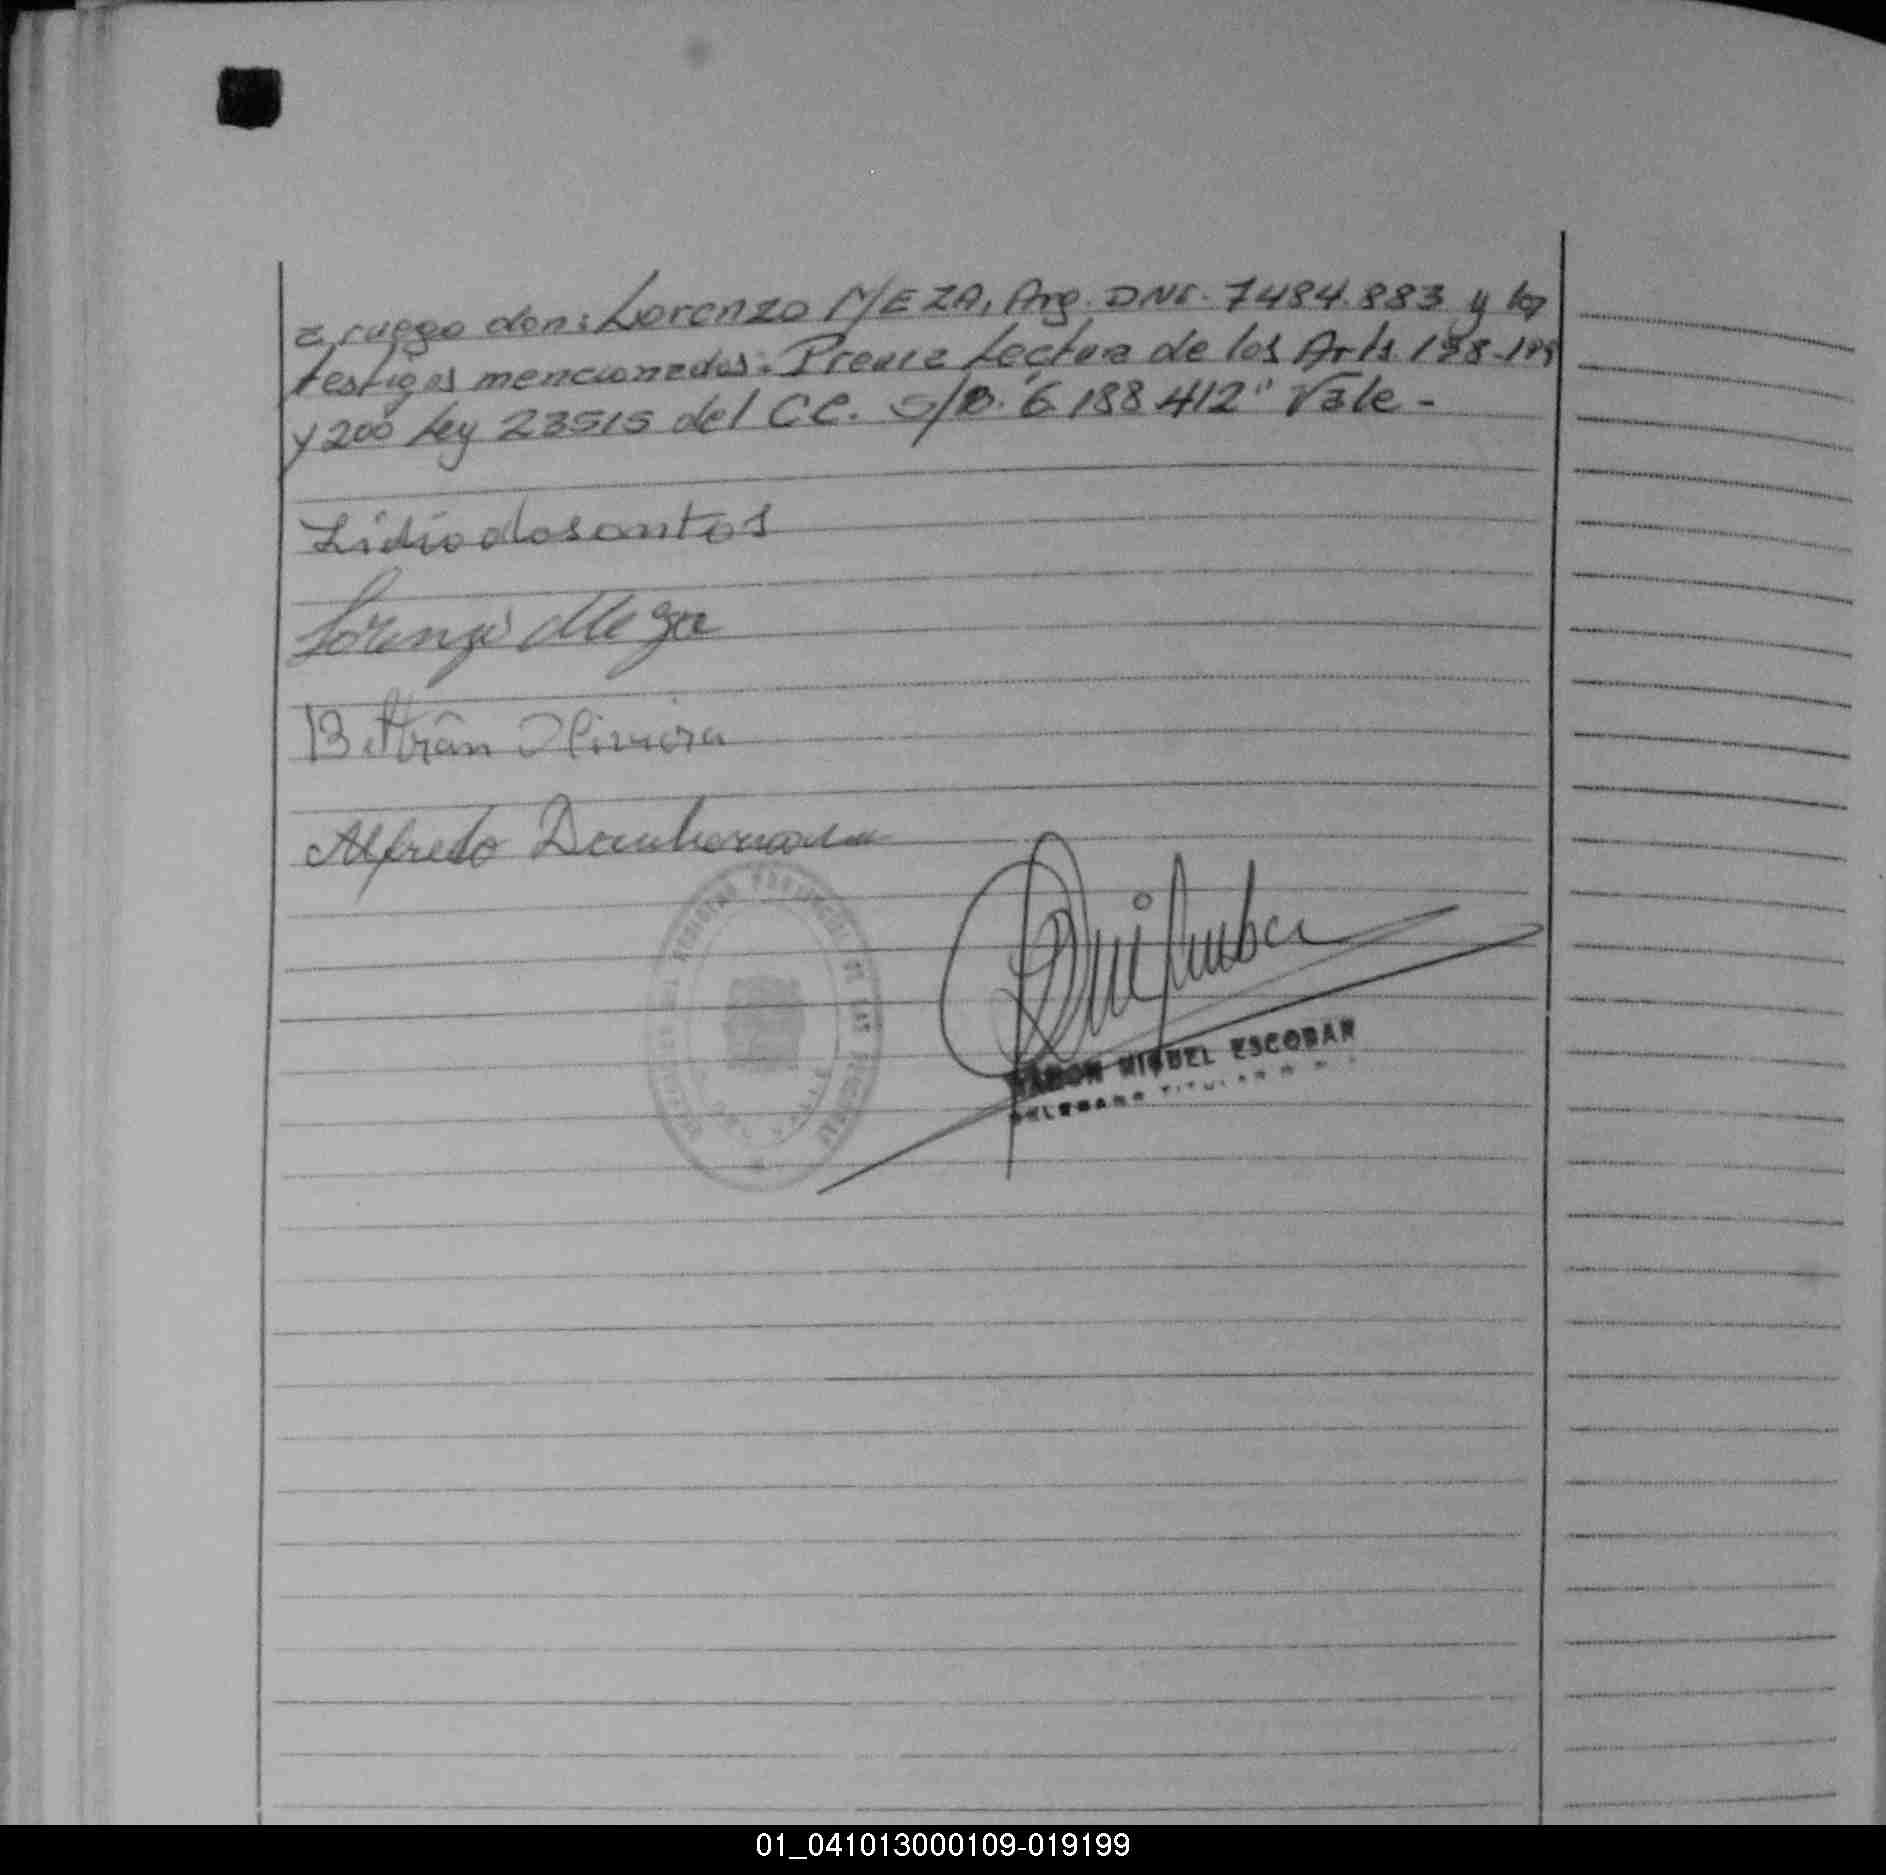 a ruego don: Lorenzo MEZA, Arg. DNI. 7484.883 y los
testigos mencionados. Previa Lectura de los Arts. 198-199
y 200 Ley 23515 del CC. S/B. "6.188.412" Vale -
Lidio dosantos
Lorenzo Meza
Beltrán Oliveira
Alfredo
REGISTRO PROVINCIAL DE LAS PERSONAS
RAMON MIGUEL ESCOBAR
DELEGADO TITULAR
01_041013000109-019199